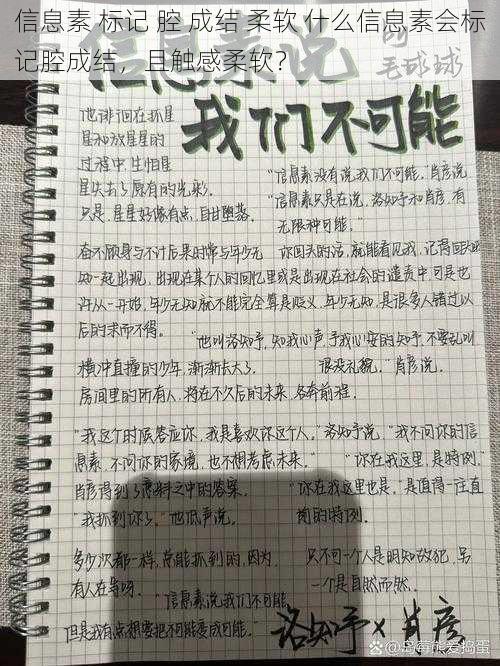 信息素 标记 腔 成结 柔软 什么信息素会标
记腔成结，且触感柔软？
信息素说
毛球球
我们不可能
他徘徊在抓星
星和放星星的
过程中,生怕星
星失去了原有的光彩.
只是,星星好像有点,自甘堕落.
"信息素没有说我们不可能."肖彦说
"信息素只是在说,洛知予和肖彦,有
无限种可能."
奋不顾身与不计后果的常与年少无
知一起出现,出现在某个人的回忆里或是出现在社会的谴责中.可是也
许从一开始,年少无知就不能完全算是贬义,年少无知,是很多人错过以
后的求而不得.
你回头的话,就能看见我,记得回头
"他叫洛知予,知我心声,予我心安的知予,不要乱叫
很没礼貌."肖彦说.
横冲直撞的少年,渐渐长大了.
房间里的所有人,将在不久后的未来,各奔前程.
"我这个时候答应你,我是喜欢你这个人."洛知予说,"我不问你的信
息素,不问你的家境,也不想考虑未来."
"你在我这里,是特例."
肖彦得到了意料之中的答案.
"你在我这里也是."是值得一庄直
"我抓到你了."他低声说.
的的特例.
多少次都一样,总能抓到的,因为,
有人在等呀.
只不可一个人是明知故犯,另
一个是自然而然.
"信息素说我们不可能
但是我有点想要把不可能变成可能."
洛知予×肖彦
百家号/岛莓熊爱捣蛋